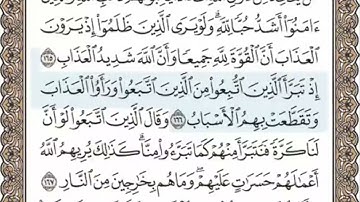 ءَامَنُوٓا۟ أَشَدُّ حُبًّا لِّلَّهِ ۗ وَلَوْ يَرَى ٱلَّذِينَ ظَلَمُوٓا۟ إِذْ يَرَوْنَ
ٱلْعَذَابَ أَنَّ ٱلْقُوَّةَ لِلَّهِ جَمِيعًا وَأَنَّ ٱللَّهَ شَدِيدُ ٱلْعَذَابِ ١٦٥
إِذْ تَبَرَّأَ ٱلَّذِينَ ٱتُّبِعُوا۟ مِنَ ٱلَّذِينَ ٱتَّبَعُوا۟ وَرَأَوُا۟ ٱلْعَذَابَ
وَتَقَطَّعَتْ بِهِمُ ٱلْأَسْبَابُ ١٦٦ وَقَالَ ٱلَّذِينَ ٱتَّبَعُوا۟ لَوْ أَنَّ
لَنَا كَرَّةً فَنَتَبَرَّأَ مِنْهُمْ كَمَا تَبَرَّءُوا۟ مِنَّا ۗ كَذَٰلِكَ يُرِيهِمُ ٱللَّهُ
أَعْمَٰلَهُمْ حَسَرَٰتٍ عَلَيْهِمْ ۖ وَمَا هُم بِخَٰرِجِينَ مِنَ ٱلنَّارِ ١٦٧